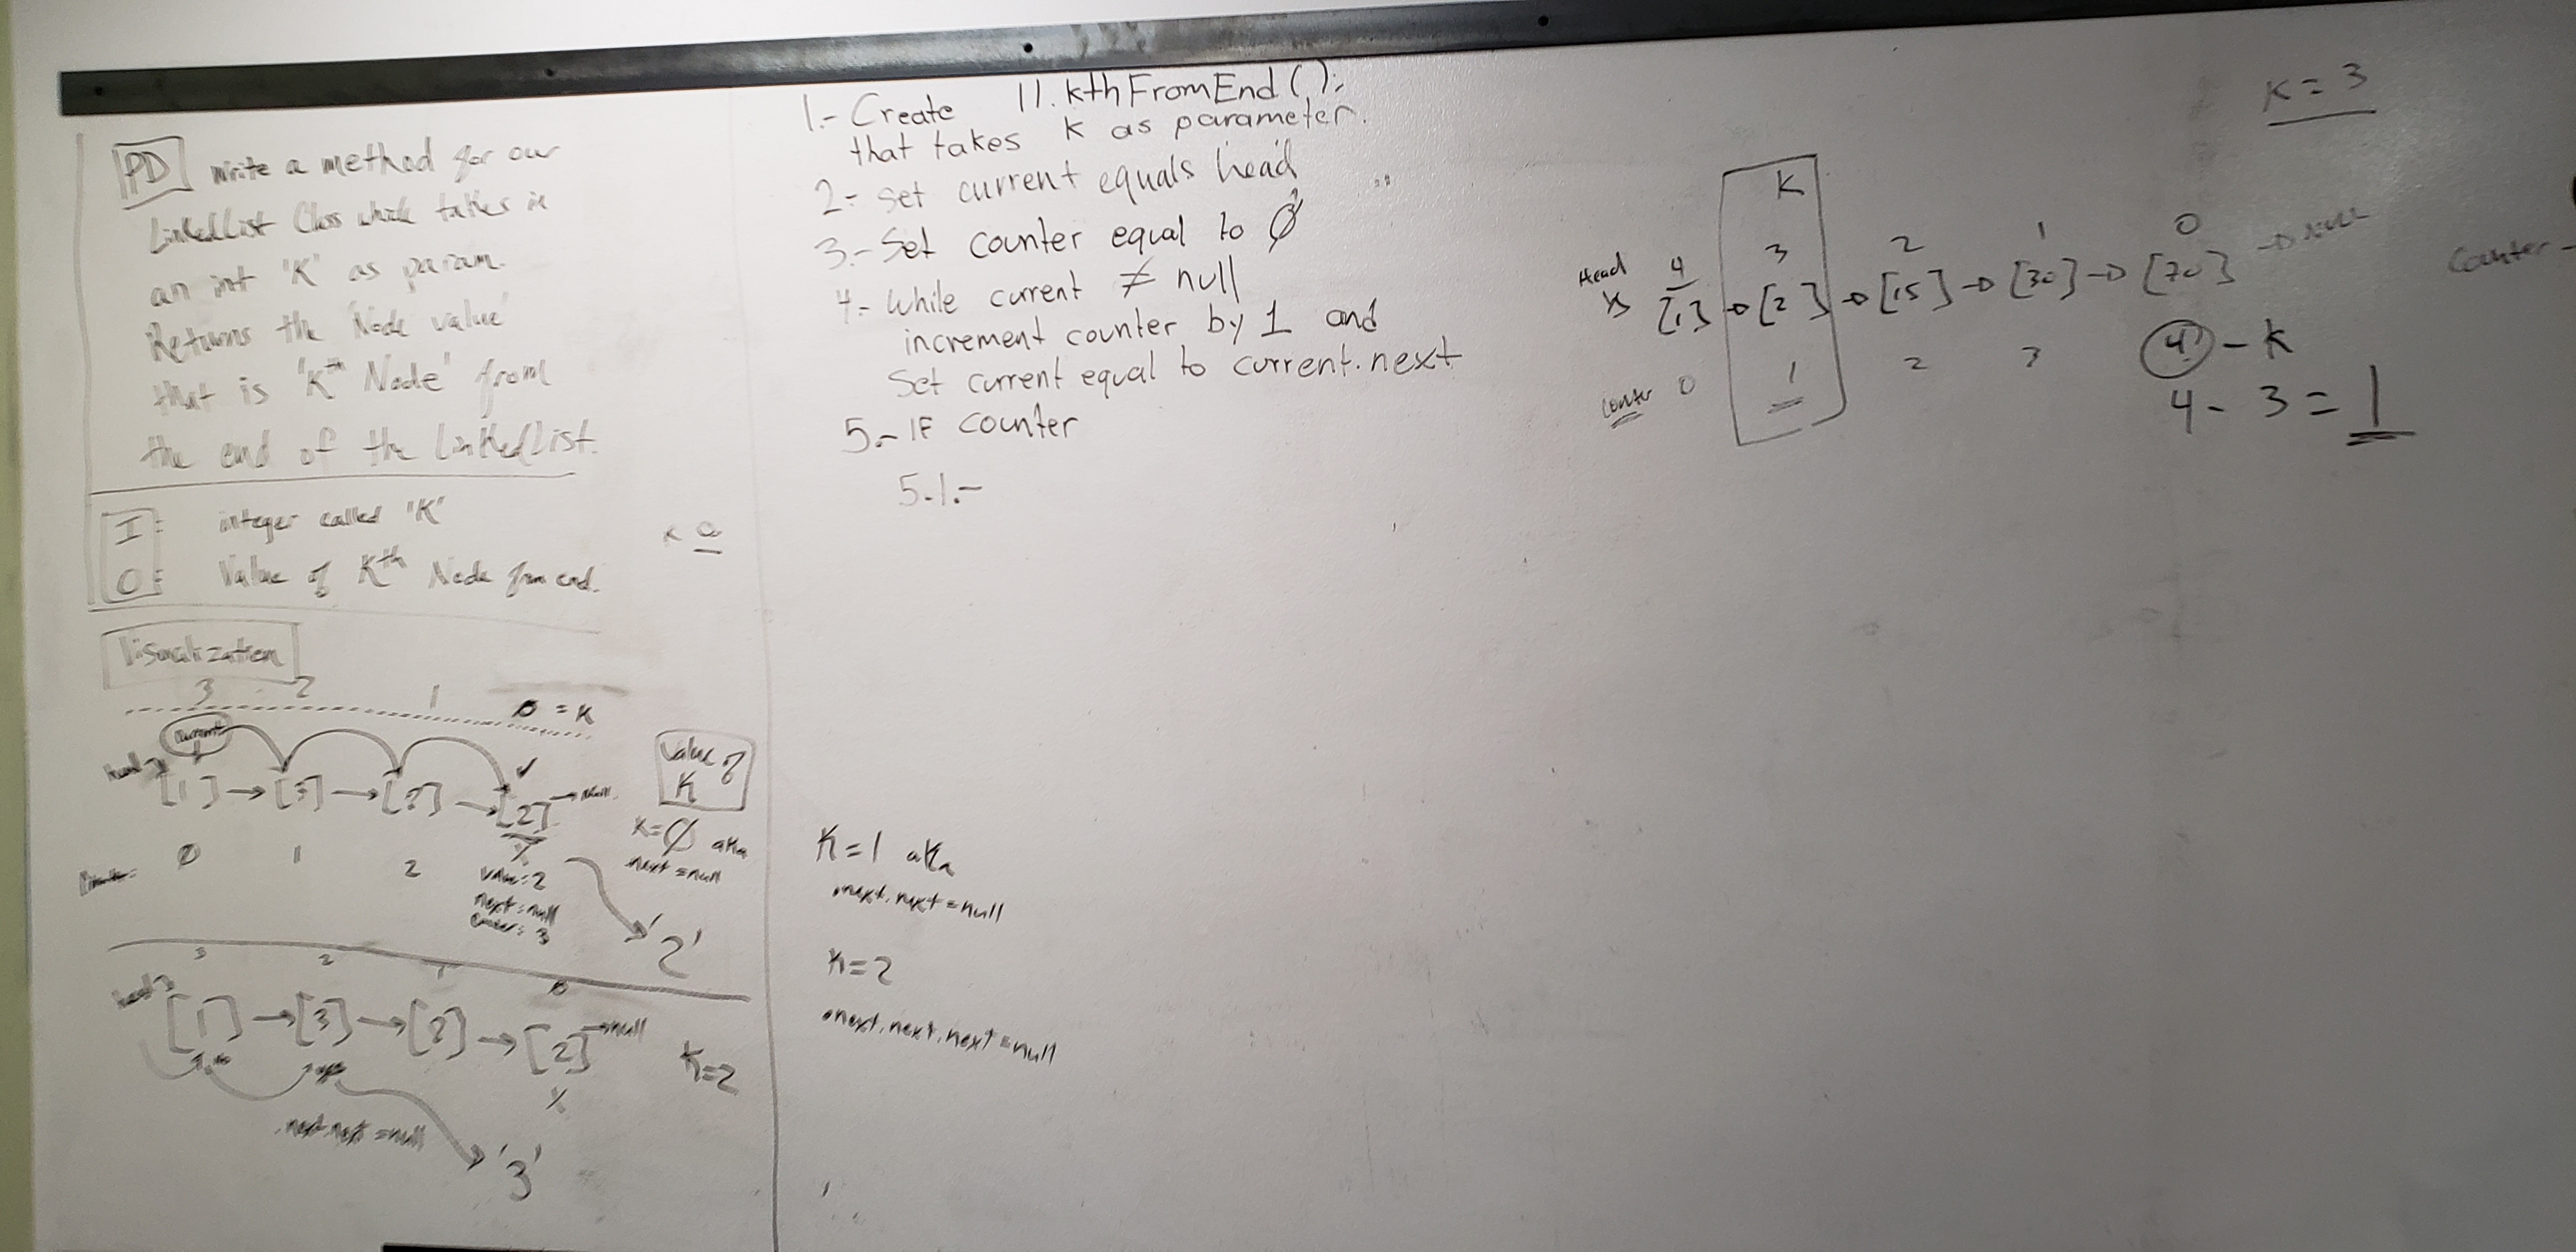 PD write a method for our
LinkedList Class which takes in
an int 'K' as param.
Returns the Node value
that is 'Kth Node' from
the end of the LinkedList.
I: integer called 'K'
O: Value of Kth Node from end.
Visualization
3 2 1 0 = K
current
head
[1] → [3] → [?] → [2] → null
0 1 2
value: 2
next: null
counter: 3
'2'
Value of
K
K=0 aka
next = null
3 2 1 0
head
[1] → [3] → [?] → [2] → null
K=2
.next.next = null
'3'
1.- Create ll.kthFromEnd();
that takes K as parameter.
2- set current equals head
3.- Set counter equal to 0
4- While current ≠ null
increment counter by 1 and
Set current equal to current.next
5.- IF counter
5.1.-
K=1 aka
.next.next = null
K=2
.next.next.next = null
K=3
K
4 3 2 1 0
Head
[1] → [2] → [15] → [30] → [70] → NULL
counter 0 1 2 3 4 - K
4 - 3 = 1
Counter -